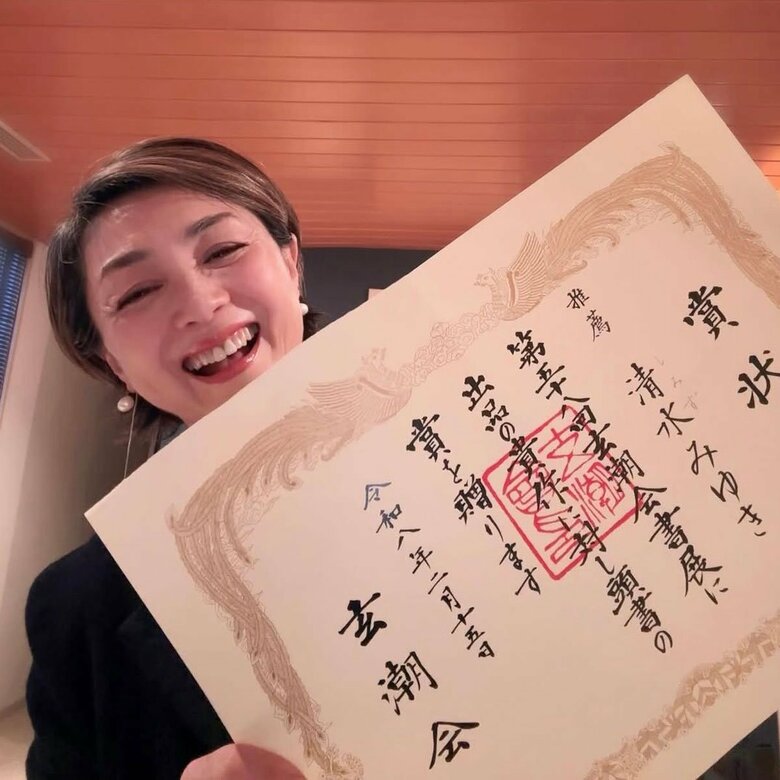 賞状
推薦
しみず
清水みゆき
第五十八回玄潮会書展に
出品の貴作に対し頭書の
賞を贈ります
令和八年二月十五日
玄潮会